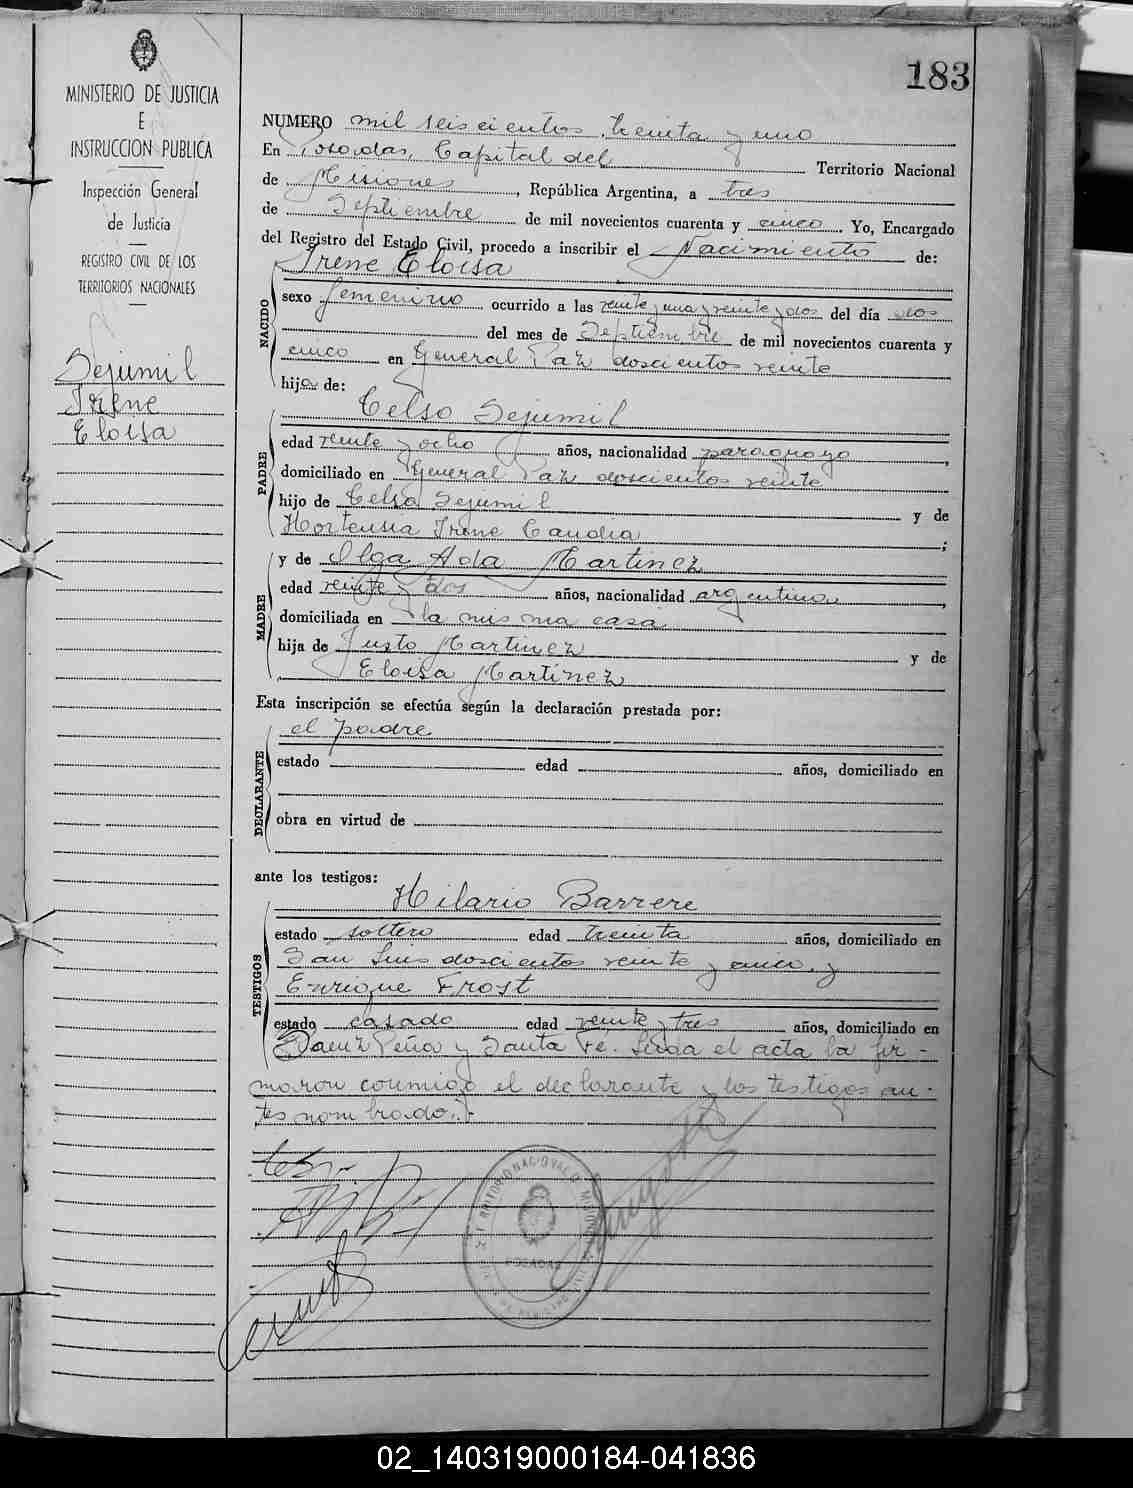 183
MINISTERIO DE JUSTICIA
E
INSTRUCCION PUBLICA
Inspección General
de Justicia
REGISTRO CIVIL DE LOS
TERRITORIOS NACIONALES
Sejumil
Irene
Eloisa
NUMERO mil seiscientos treinta y uno
En Posadas, Capital del Territorio Nacional
de Misiones, República Argentina, a tres
de Septiembre de mil novecientos cuarenta y cinco. Yo, Encargado
del Registro del Estado Civil, procedo a inscribir el Nacimiento de:
Irene Eloisa
NACIDO
sexo femenino ocurrido a las veinte y una y veinte y dos del día dos
del mes de Septiembre de mil novecientos cuarenta y
cinco en General Paz doscientos veinte
hija de:
Celso Sejumil
PADRE
edad veinte y ocho años, nacionalidad paraguayo,
domiciliado en General Paz doscientos veinte
hijo de Celso Sejumil y de
Hortensia Irene Candia;
y de Olga Ada Martinez
MADRE
edad veinte y dos años, nacionalidad argentina,
domiciliada en la misma casa
hija de Justo Martinez y de
Eloisa Martinez
Esta inscripción se efectúa según la declaración prestada por:
el padre
DECLARANTE
estado edad años, domiciliado en
obra en virtud de
ante los testigos:
Hilario Barrere
TESTIGOS
estado soltero edad treinta años, domiciliado en
San Luis doscientos veinte y cinco y
Enrique Frost
estado casado edad veinte y tres años, domiciliado en
Saenz Peña y Santa Fe. Leida el acta la fir-
maron conmigo el declarante y los testigos an-
tes nombrados.-
POSADAS
02_140319000184-041836